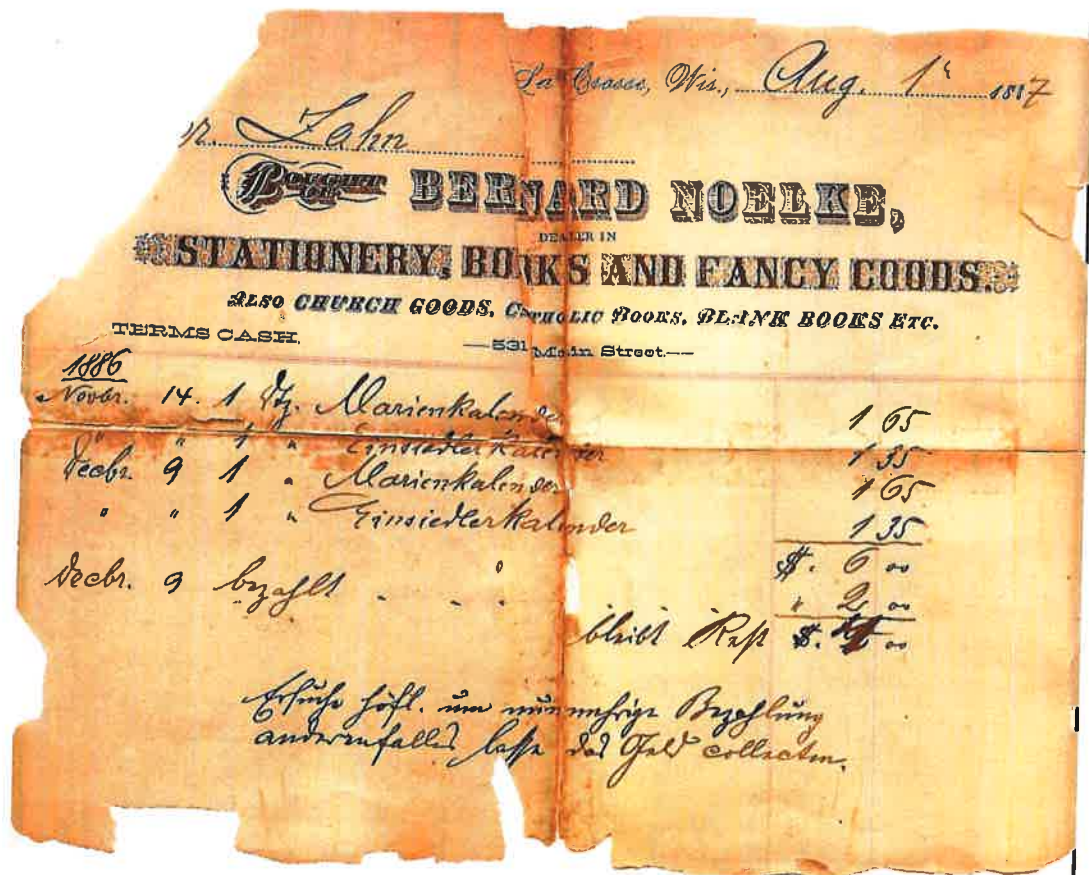 La Crosse, Wis., Aug. 1t 1887
Zahn
BOUGHT OF BERNARD NOELKE,
DEALER IN
STATIONERY, BOOKS AND FANCY GOODS.
ALSO CHURCH GOODS, CATHOLIC BOOKS, BLANK BOOKS ETC.
TERMS CASH. —531 Main Street.—
1886
Novbr. 14. 1 Dtz. Marienkalender 1 65
" " 1 " Einsiedlerkalender 1 35
Decbr. 9 1 " Marienkalender 1 65
" " 1 " Einsiedlerkalender 1 35
$. 6 00
Decbr. 9 bezahlt . . . " 2 00
bleibt Rest $. 4 00
Ersuche höfl. um nunmehrige Bezahlung
anderenfalls lasse das Geld collecten.